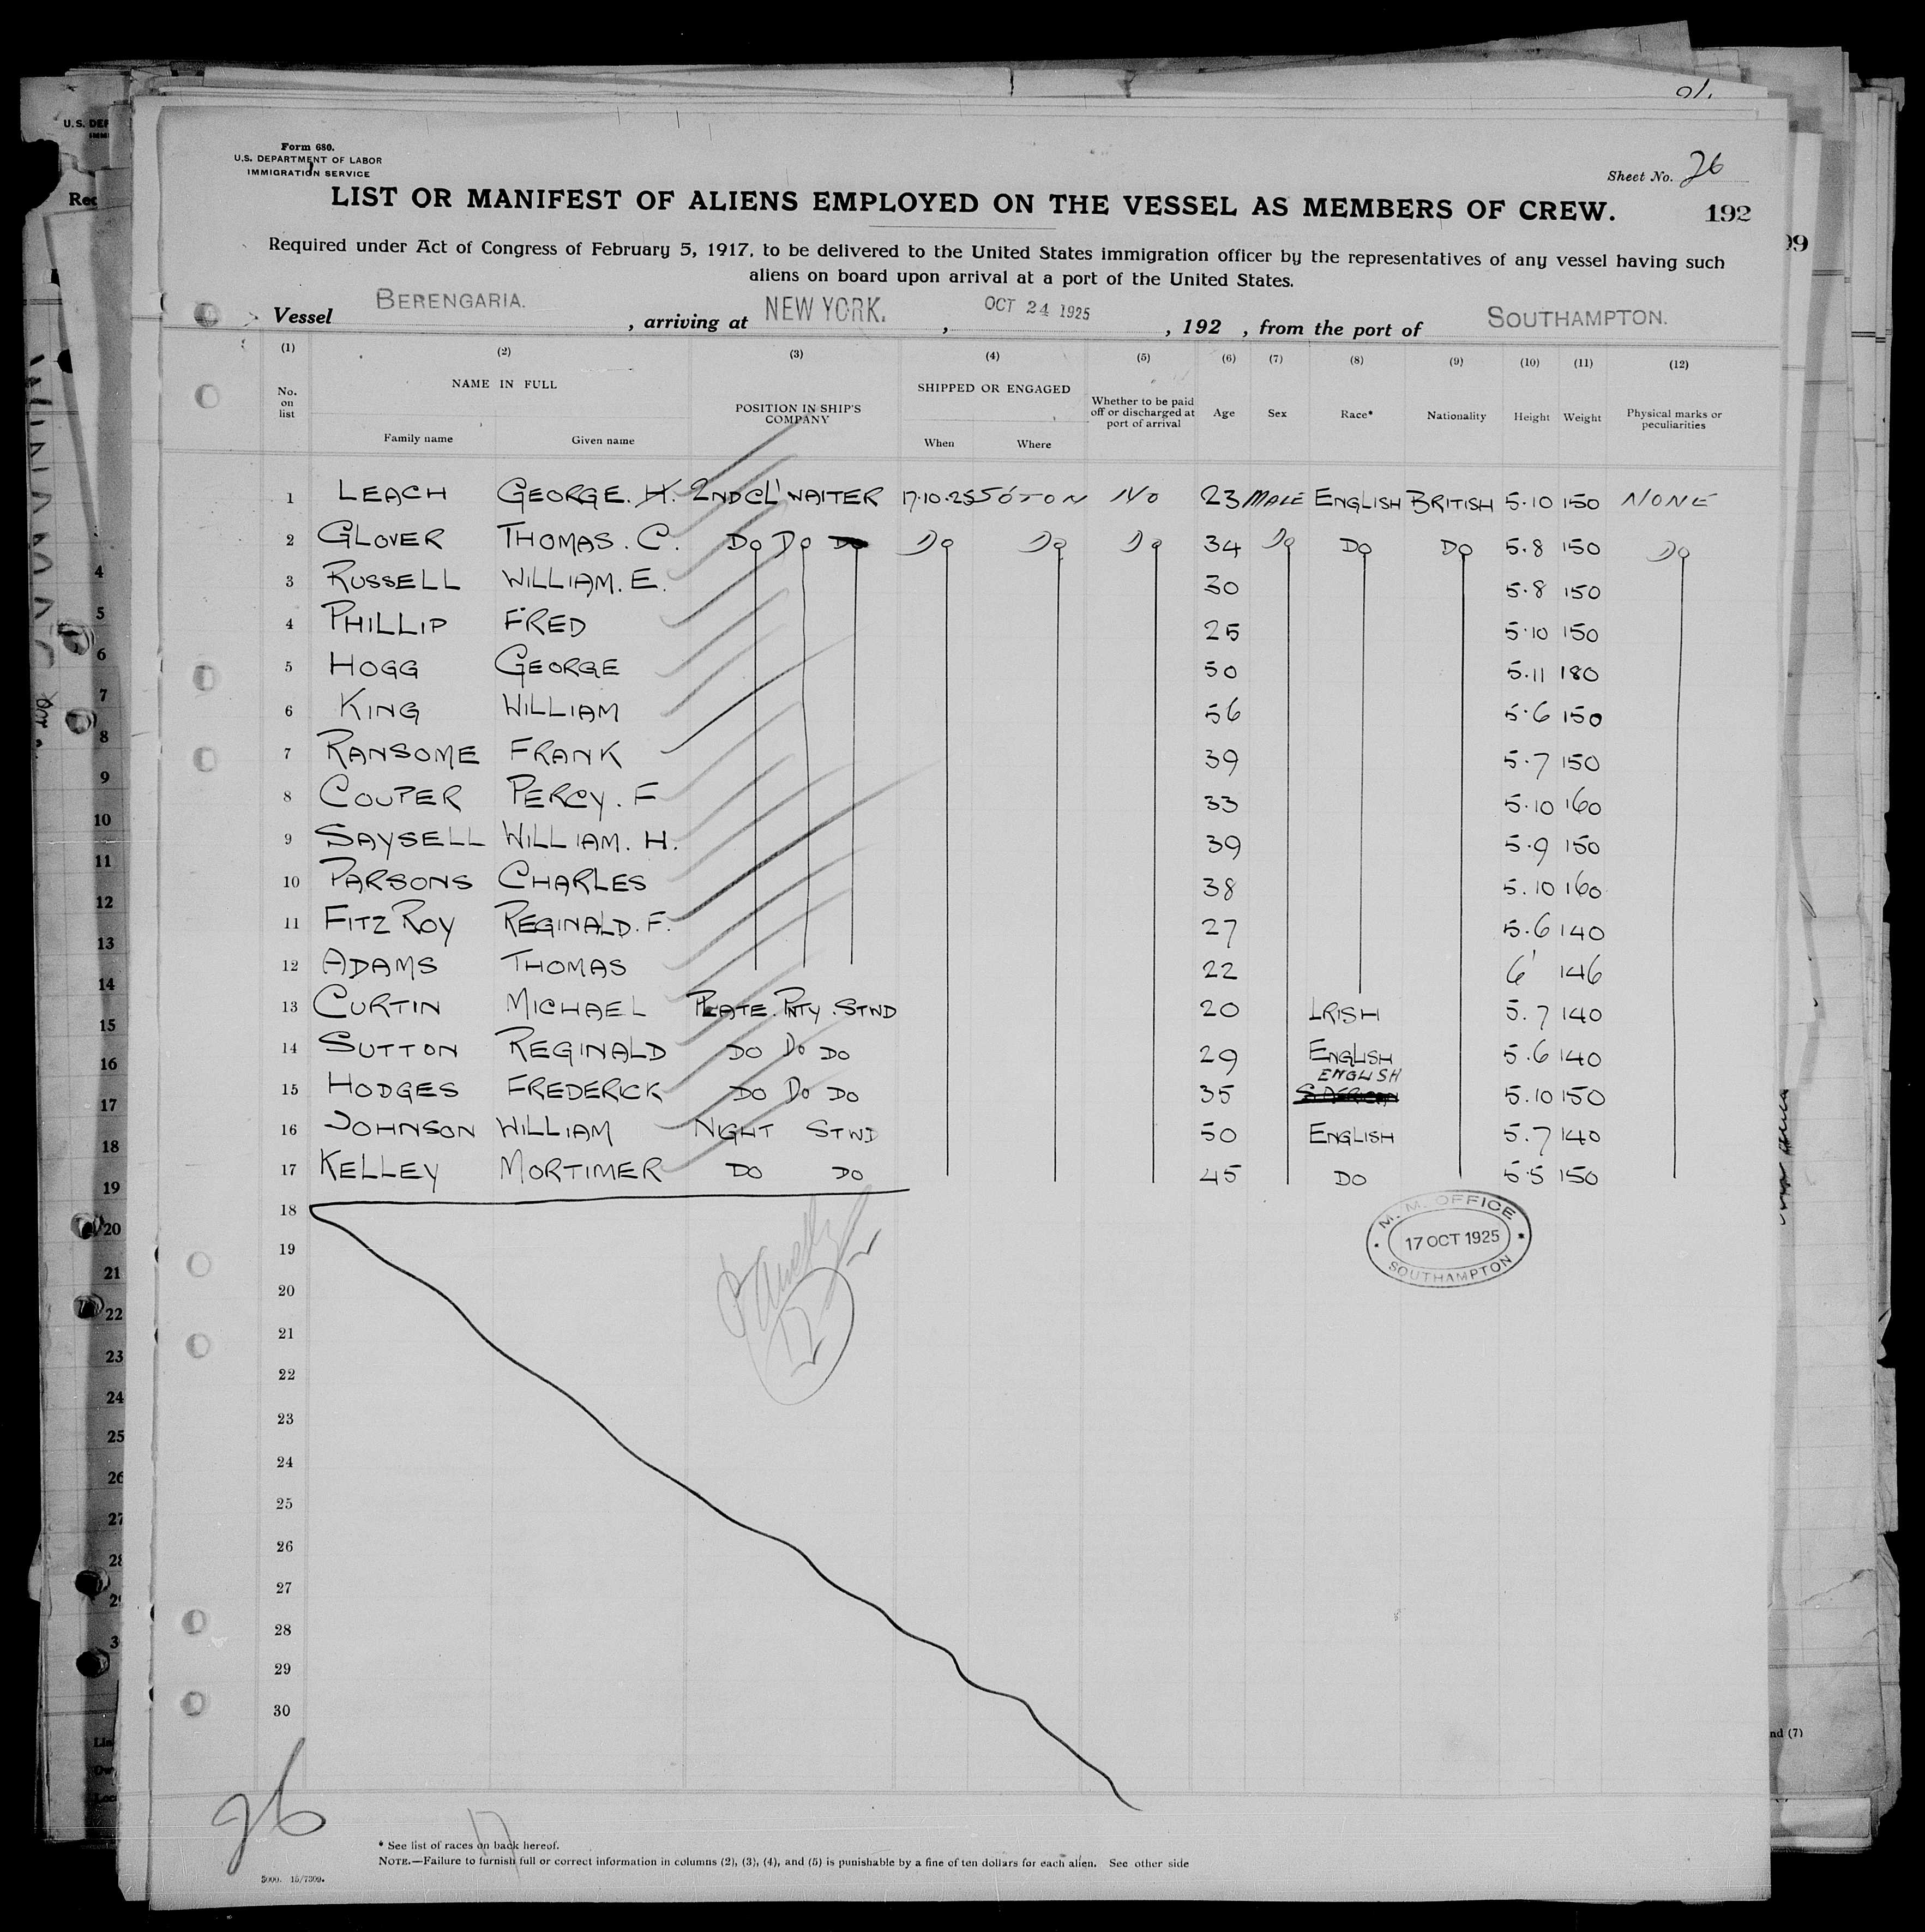 Form 680.
U.S. DEPARTMENT OF LABOR
IMMIGRATION SERVICE
Sheet No. 26
LIST OR MANIFEST OF ALIENS EMPLOYED ON THE VESSEL AS MEMBERS OF CREW.
192
Required under Act of Congress of February 5, 1917, to be delivered to the United States immigration officer by the representatives of any vessel having such
aliens on board upon arrival at a port of the United States.
Vessel BERENGARIA. , arriving at NEW YORK. , OCT 24 1925 , 192 , from the port of SOUTHAMPTON.
(1) (2) (3) (4) (5) (6) (7) (8) (9) (10) (11) (12)
No. on list NAME IN FULL POSITION IN SHIP'S COMPANY SHIPPED OR ENGAGED Whether to be paid off or discharged at port of arrival Age Sex Race* Nationality Height Weight Physical marks or peculiarities
Family name Given name When Where
1 LEACH GEORGE. H. 2ND CL' WAITER 17.10.25 SOTON NO 23 MALE ENGLISH BRITISH 5.10 150 NONE
2 GLOVER THOMAS. C. DO DO DO DO DO DO 34 DO DO DO 5.8 150 DO
3 RUSSELL WILLIAM. E. 30 5.8 150
4 PHILLIP FRED 25 5.10 150
5 HOGG GEORGE 50 5.11 180
6 KING WILLIAM 56 5.6 150
7 RANSOME FRANK 39 5.7 150
8 COUPER PERCY. F 33 5.10 160
9 SAYSELL WILLIAM. H. 39 5.9 150
10 PARSONS CHARLES 38 5.10 160
11 FITZ ROY REGINALD. F. 27 5.6 140
12 ADAMS THOMAS 22 6' 146
13 CURTIN MICHAEL PLATE. PNTY. STWD 20 IRISH 5.7 140
14 SUTTON REGINALD DO DO DO 29 ENGLISH 5.6 140
ENGLISH
15 HODGES FREDERICK DO DO DO 35 S AFRICAN 5.10 150
16 JOHNSON WILLIAM NIGHT STWD 50 ENGLISH 5.7 140
17 KELLEY MORTIMER DO DO 45 DO 5.5 150
18
M. M. OFFICE
17 OCT 1925
SOUTHAMPTON
19
20
21
22
23
24
25
26
27
28
29
30
26
17
* See list of races on back hereof.
NOTE.—Failure to furnish full or correct information in columns (2), (3), (4), and (5) is punishable by a fine of ten dollars for each alien. See other side
5000. 15/7309.